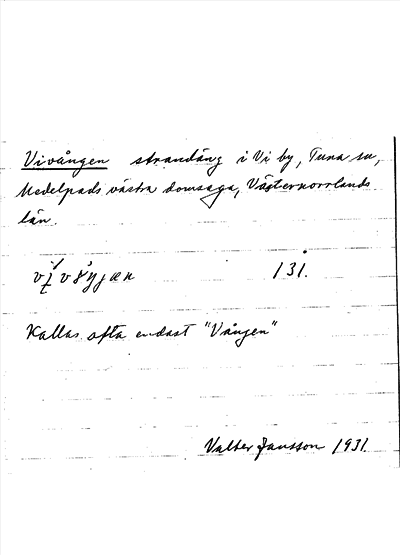 Vivången strandäng i Vi by, Tuna sn,
Medelpads västra domsaga, Västernorrlands
län.
131.
Kallas ofta endast "Vången"
Valter Jansson 1931.